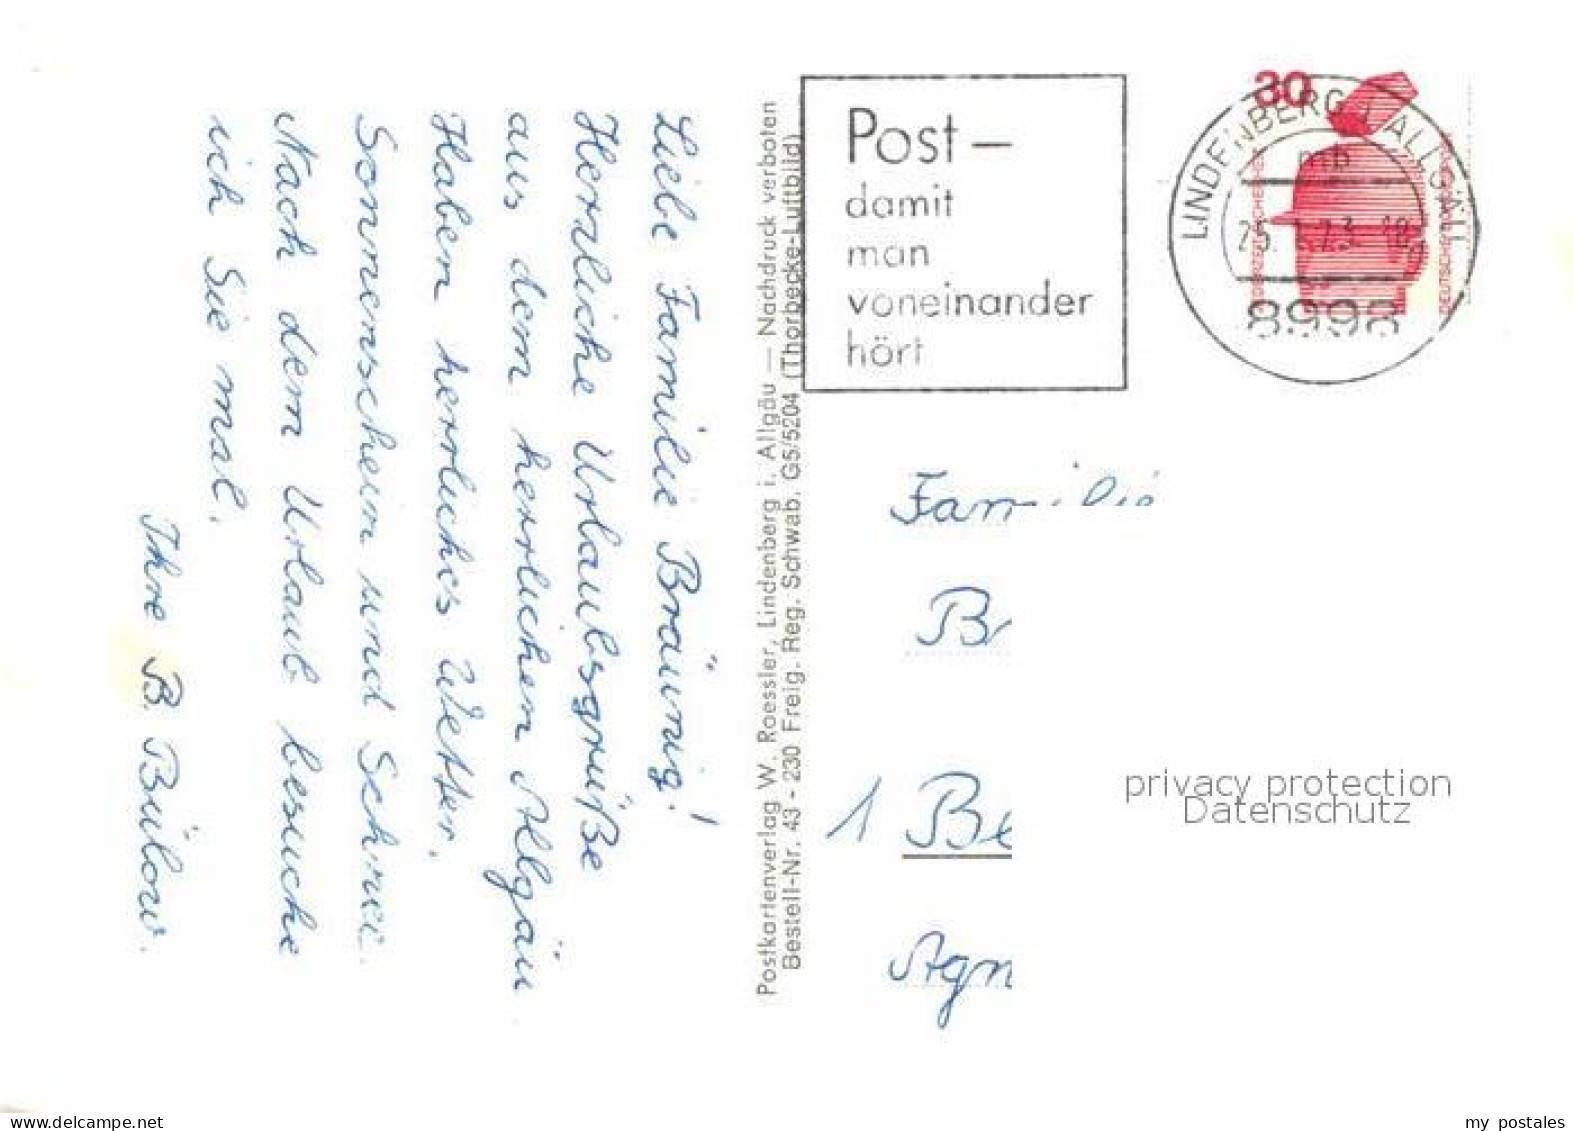 Liebe Familie Bräunig!
Herzliche Urlaubsgrüße
aus dem herrlichen Allgäu
Haben herrliches Wetter.
Sonnenschein und Schnee.
Nach dem Urlaub besuche
ich Sie mal.
Ihre B. Bülow.
Postkartenverlag W. Roessler, Lindenberg i. Allgäu — Nachdruck verboten
Bestell-Nr. 43 - 230 Freig. Reg. Schwab. G5/5204 (Thorbecke-Luftbild)
Post –
damit
man
voneinander
hört
30
LINDENBERG I ALLGÄU
mb
8998
Familie
Br
1 Be
Agn
privacy protection
Datenschutz
www.delcampe.net
my postales